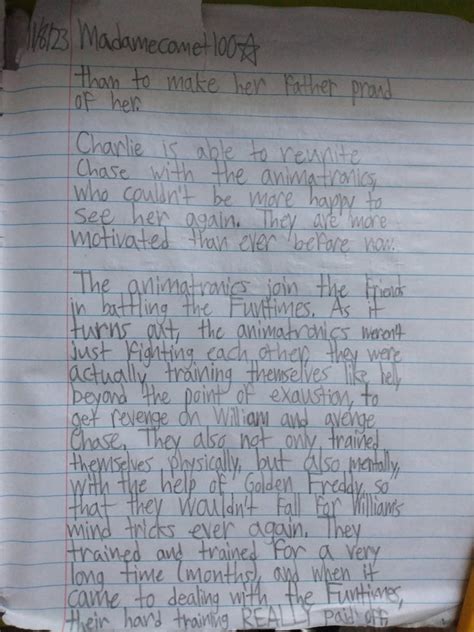 1/8/23 Madamecomet100☆
than to make her father proud
of her.
Charlie is able to reunite
Chase with the animatronics,
who couldn't be more happy to
see her again. They are more
motivated than ever before now.
The animatronics join the friends
in battling the Funtimes. As it
turns out, the animatronics weren't
just fighting each other, they were
actually training themselves like hell,
beyond the point of exaustion, to
get revenge on William and avenge
Chase. They also not only trained
themselves physically, but also mentally,
with the help of Golden Freddy so
that they wouldn't fall for William's
mind tricks ever again. They
trained and trained for a very
long time (months), and when it
came to dealing with the Funtimes,
their hard training REALLY paid off.